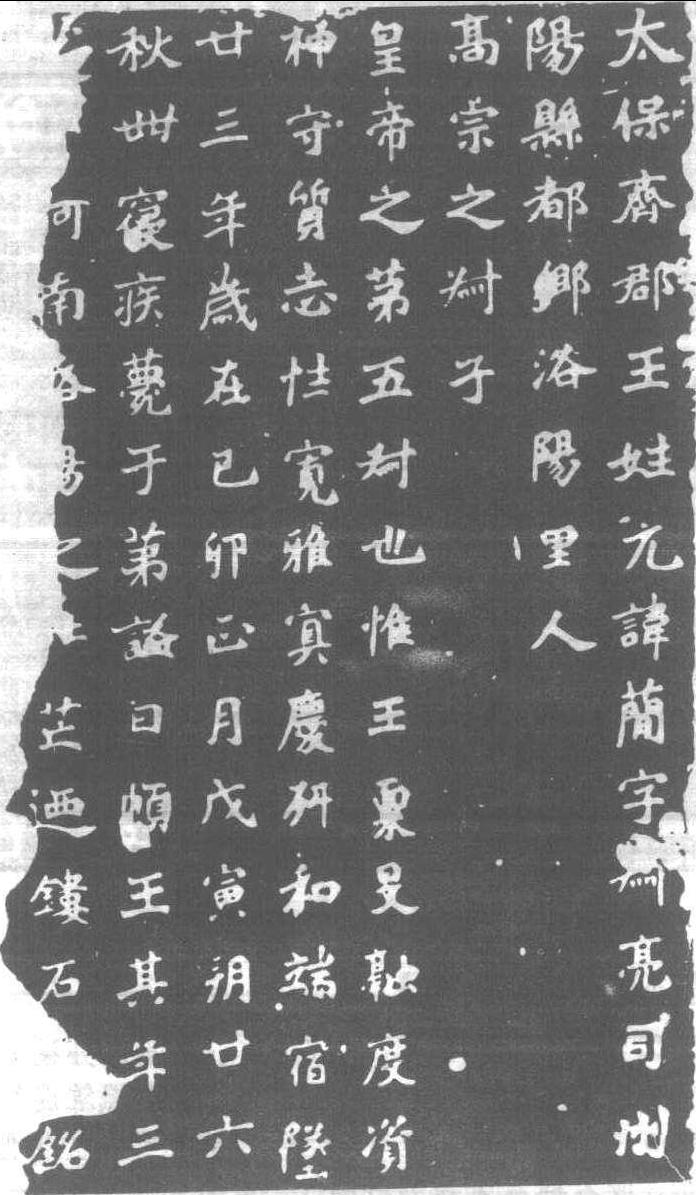 太保齊郡王姓元諱蕳字叔亮司州
陽縣都鄉洛陽里人
高宗之叔子
皇帝之第五叔也惟王稟旻融度資
神守質志性寬雅冥慶舛和端宿墜
廿三年歲在己卯正月戊寅朔廿六
秋卌寢疾薨于第謚曰順王其年三
河南洛陽之北芒迺鏤石銘